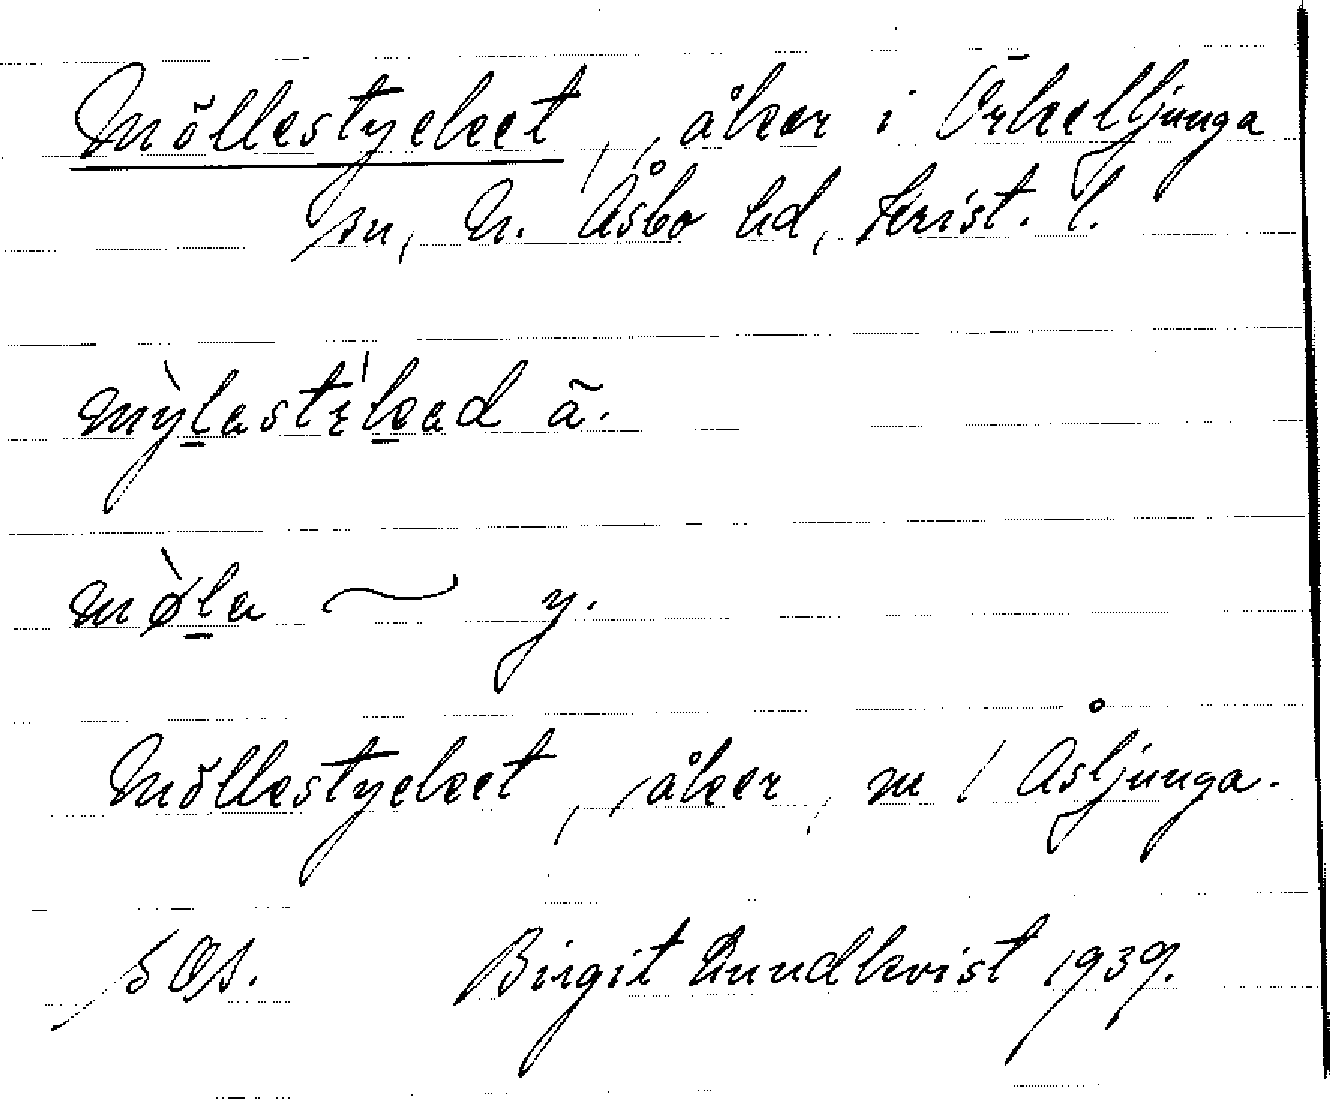 Möllestycket, åker i Örkelljunga
sn, N. Åsbo hd, Krist. l.
mỳlastìkad ä.
mø̀la ~ y.
Möllestycket, åker, n / Åsljunga.
Birgit Lundkvist 1939.